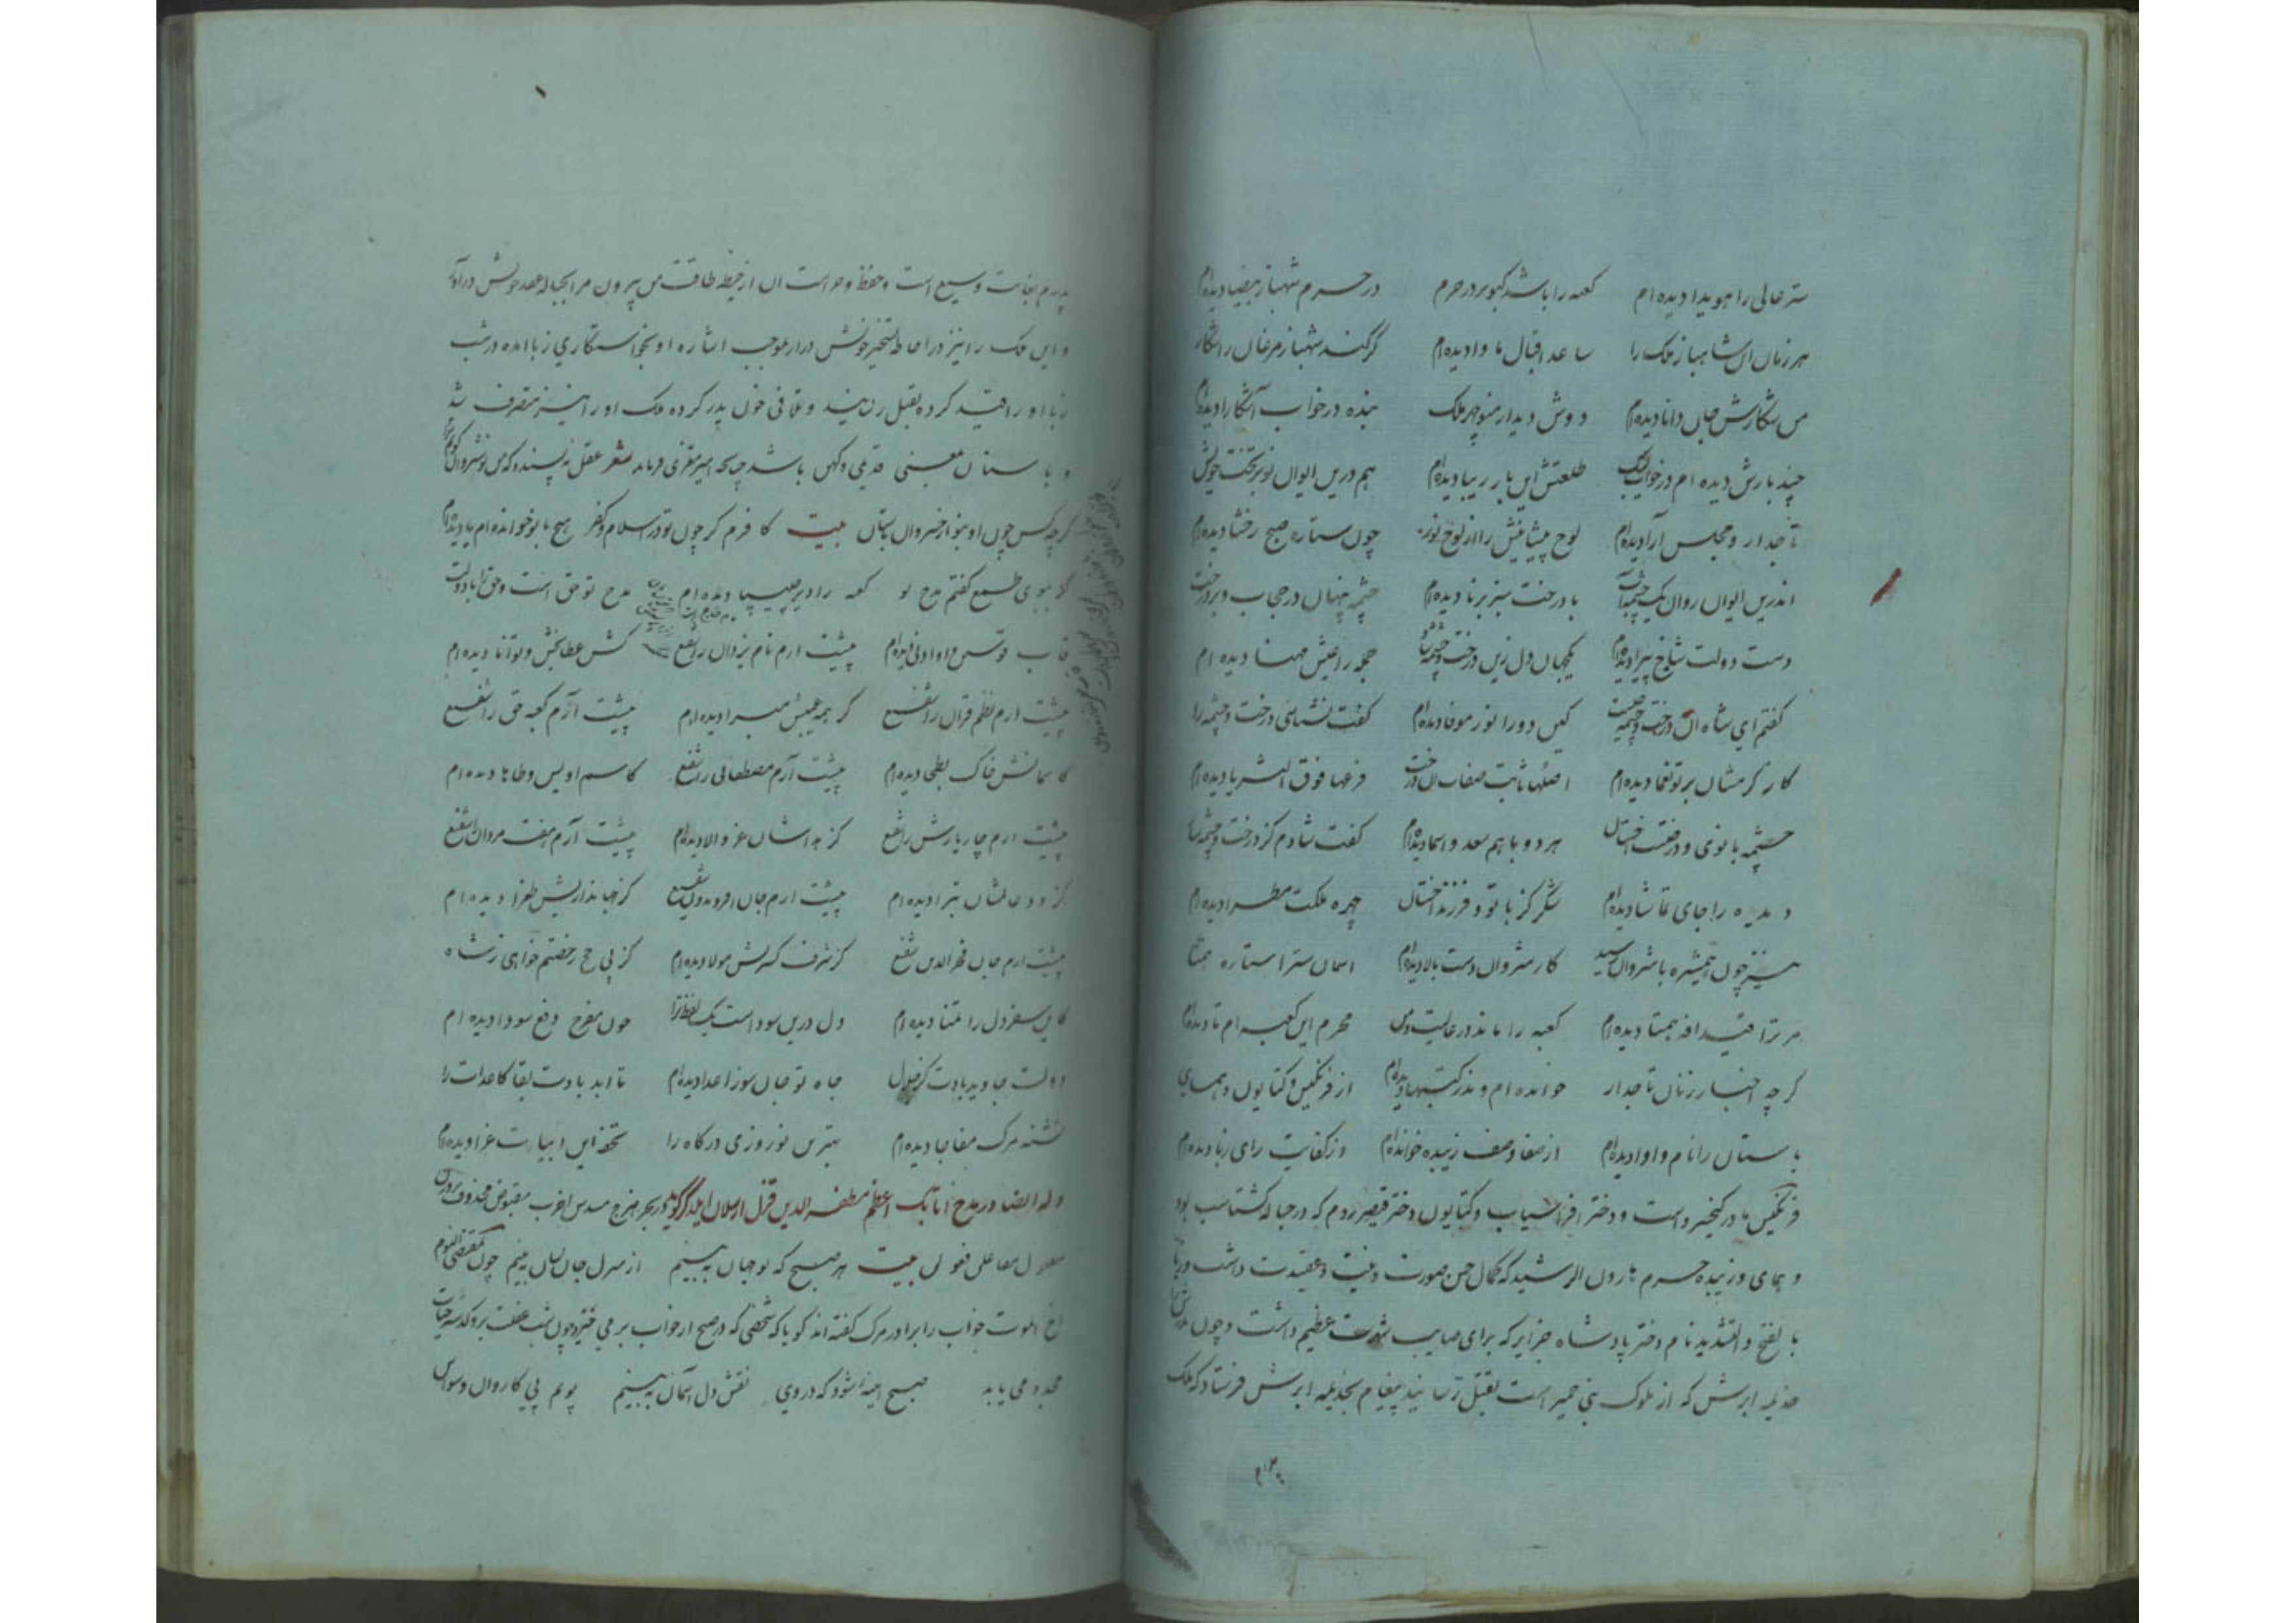 ستر عالی را هویدا دیده ام کعبه را باشد کبوتر در حرم در حرم شهباز بیضا دیده ام
هر زمان آن شاهباز ملک را ساعد اقبال ماوا دیده ام گر کند شهباز مرغان را شکار
من شکارش جان دانا دیده ام دوش دیدار منوچهر ملک بنده در خواب آشکارا دیده ام
چند بارش دیده ام در خواب لیک طلعتش این بار زیبا دیده ام هم درین ایوان نو بر تخت خویش
تاجدار و مجلس آرا دیده ام لوح پیشانیش را از نور چون ستاره صبح رخشا دیده ام
اندرین ایوان روان یک چشمه آب با درخت سبز برنا دیده ام چشمه پنهان در حجاب و بر درخت
دست دولت شاخ پیرا دیده ام کمجهان دل زین درخت و چشمه حجله را عیش مهنا دیده ام
گفتم ای شاه این درخت و چشمه چیست کین دو را نور موفا دیده ام گفت نشناسی درخت و چشمه را
کار کرمشان بر تو نعما دیده ام اصلها ثابت صفات آن درخت فرعها فوق الثریا دیده ام
چشمه بانوی و درخت اخستان هر دو با هم سعد و اسما دیده ام گفت شادم کز درخت و چشمه
دیده را جای تماشا دیده ام شکر کز بانو و فرزند اخستان چهره ملکت مطرا دیده ام
نیز چون همشیره با شروان رسید کار شروان دست بالا دیده ام آسمان ستر استاره همتا
مر ترا قیدافه همتا دیده ام کعبه را ماند در عالیت و من محرم این کعبه ام تا دیده ام
گرچه اخبار زنان تاجدار خوانده ام و اندر کتبها دیده ام از فرنگیس و کتایون و همای
باستان را نام و آوا دیده ام از صفا وصف زبیده خوانده ام وز کفایت رای زبا دیده ام
فرنگیس مادر کیخسرو است و دختر افراسیاب و کتایون دختر قیصر روم که در حباله گشتاسب بود
و همای و زبیده حرم هارون الرشید که کمال حسن صورت و نیت و عقیدت داشت و زبا
بالفتح و التشدید نام دختر پادشاه جزایر که برای صایب شهرت عظیم داشت و چون پدرش را
جذیمه ابرش که از ملوک بنی حمیر است بقتل رسانید پیغام بجذیمه ابرش فرستاد که ملک
پدرم بغایت وسیع است و حفظ و حراست آن از حیطه طاقت من بیرون مرا بحباله عقد خویش درآور
و این ملک را نیز در احاطه تسخیر خویش درار بموجب اشاره او بخواستگاری زبا آمده در شب
زبا او را قید کرده بقتل رسانید و تلافی خون پدر کرده ملک او را نیز متصرف شد
و باستان بمعنی قدیمی و کهن باشد چنانچه امیر معزی فرماید شعر عقل نپسندد که من نوشیروان گویم
گرچه کس چون او نبود از خسروان باستان بیت کافرم گر چون تو در اسلام و کفر هیچ بانو خوانده ام یا دیده ام
گر ببوی طمع گفتم مدح تو کعبه را دیر چلیپا دیده ام مدح تو حق است و حق را با دولت
قاب قوسین و او ادنی دیده ام پیشت ارم نام یزدان را شفیع کش عطابخش و توانا دیده ام
پیشت ارم نظم قرآن را شفیع گر همه عیبش مبرا دیده ام پیشت آرم کعبه حق را شفیع
کاسمانش خاک بطحا دیده ام پیشت آرم مصطفای را شفیع کاسم او یس و طاها دیده ام
پیشت ارم چار یارش را شفیع کز بهاشان عز و الا دیده ام پیشت آرم هفت مردان را شفیع
کز دو عالمشان تبرا دیده ام پیشت ارم جان افریدون شفیع کز جهانداریش طغرا دیده ام
پیشت ارم جان فخر الدین شفیع کز شرف کسریش مولا دیده ام کز پی حج رخصتم خواهی ز شاه
کاین سفر دل را تمنا دیده ام دل درین سوداست یک لفظ ترا چون مفرح دفع سودا دیده ام
دولت جاوید بادت کز فضول جاه تو جان سوز اعدا دیده ام تا ابد بادت بقا کاعدات را
تشنه مرگ مفاجا دیده ام بهترین نوروزی درگاه را تحفه این ابیات غرا دیده ام
وله ایضا در مدح اتابک اعظم مظفر الدین قزل ارسلان ایلدگز گوید در بحر هزج مسدس اخرب مقبوض محذوف
مفعول مفاعلن فعولن بیت هر صبح که نو جهان ببینم از منزل جان نشان ببینم چون بمقتضی النوم
اخ الموت خواب را برادر مرگ گفته اند گویا که شخصی که در صبح از خواب بر می خیزد چون شب غفلت بر وگذشته حیات
مجدد می یابد صبح آینه شود که در وی نقش دل آسمان ببینم پویم پی کاروان وسواس